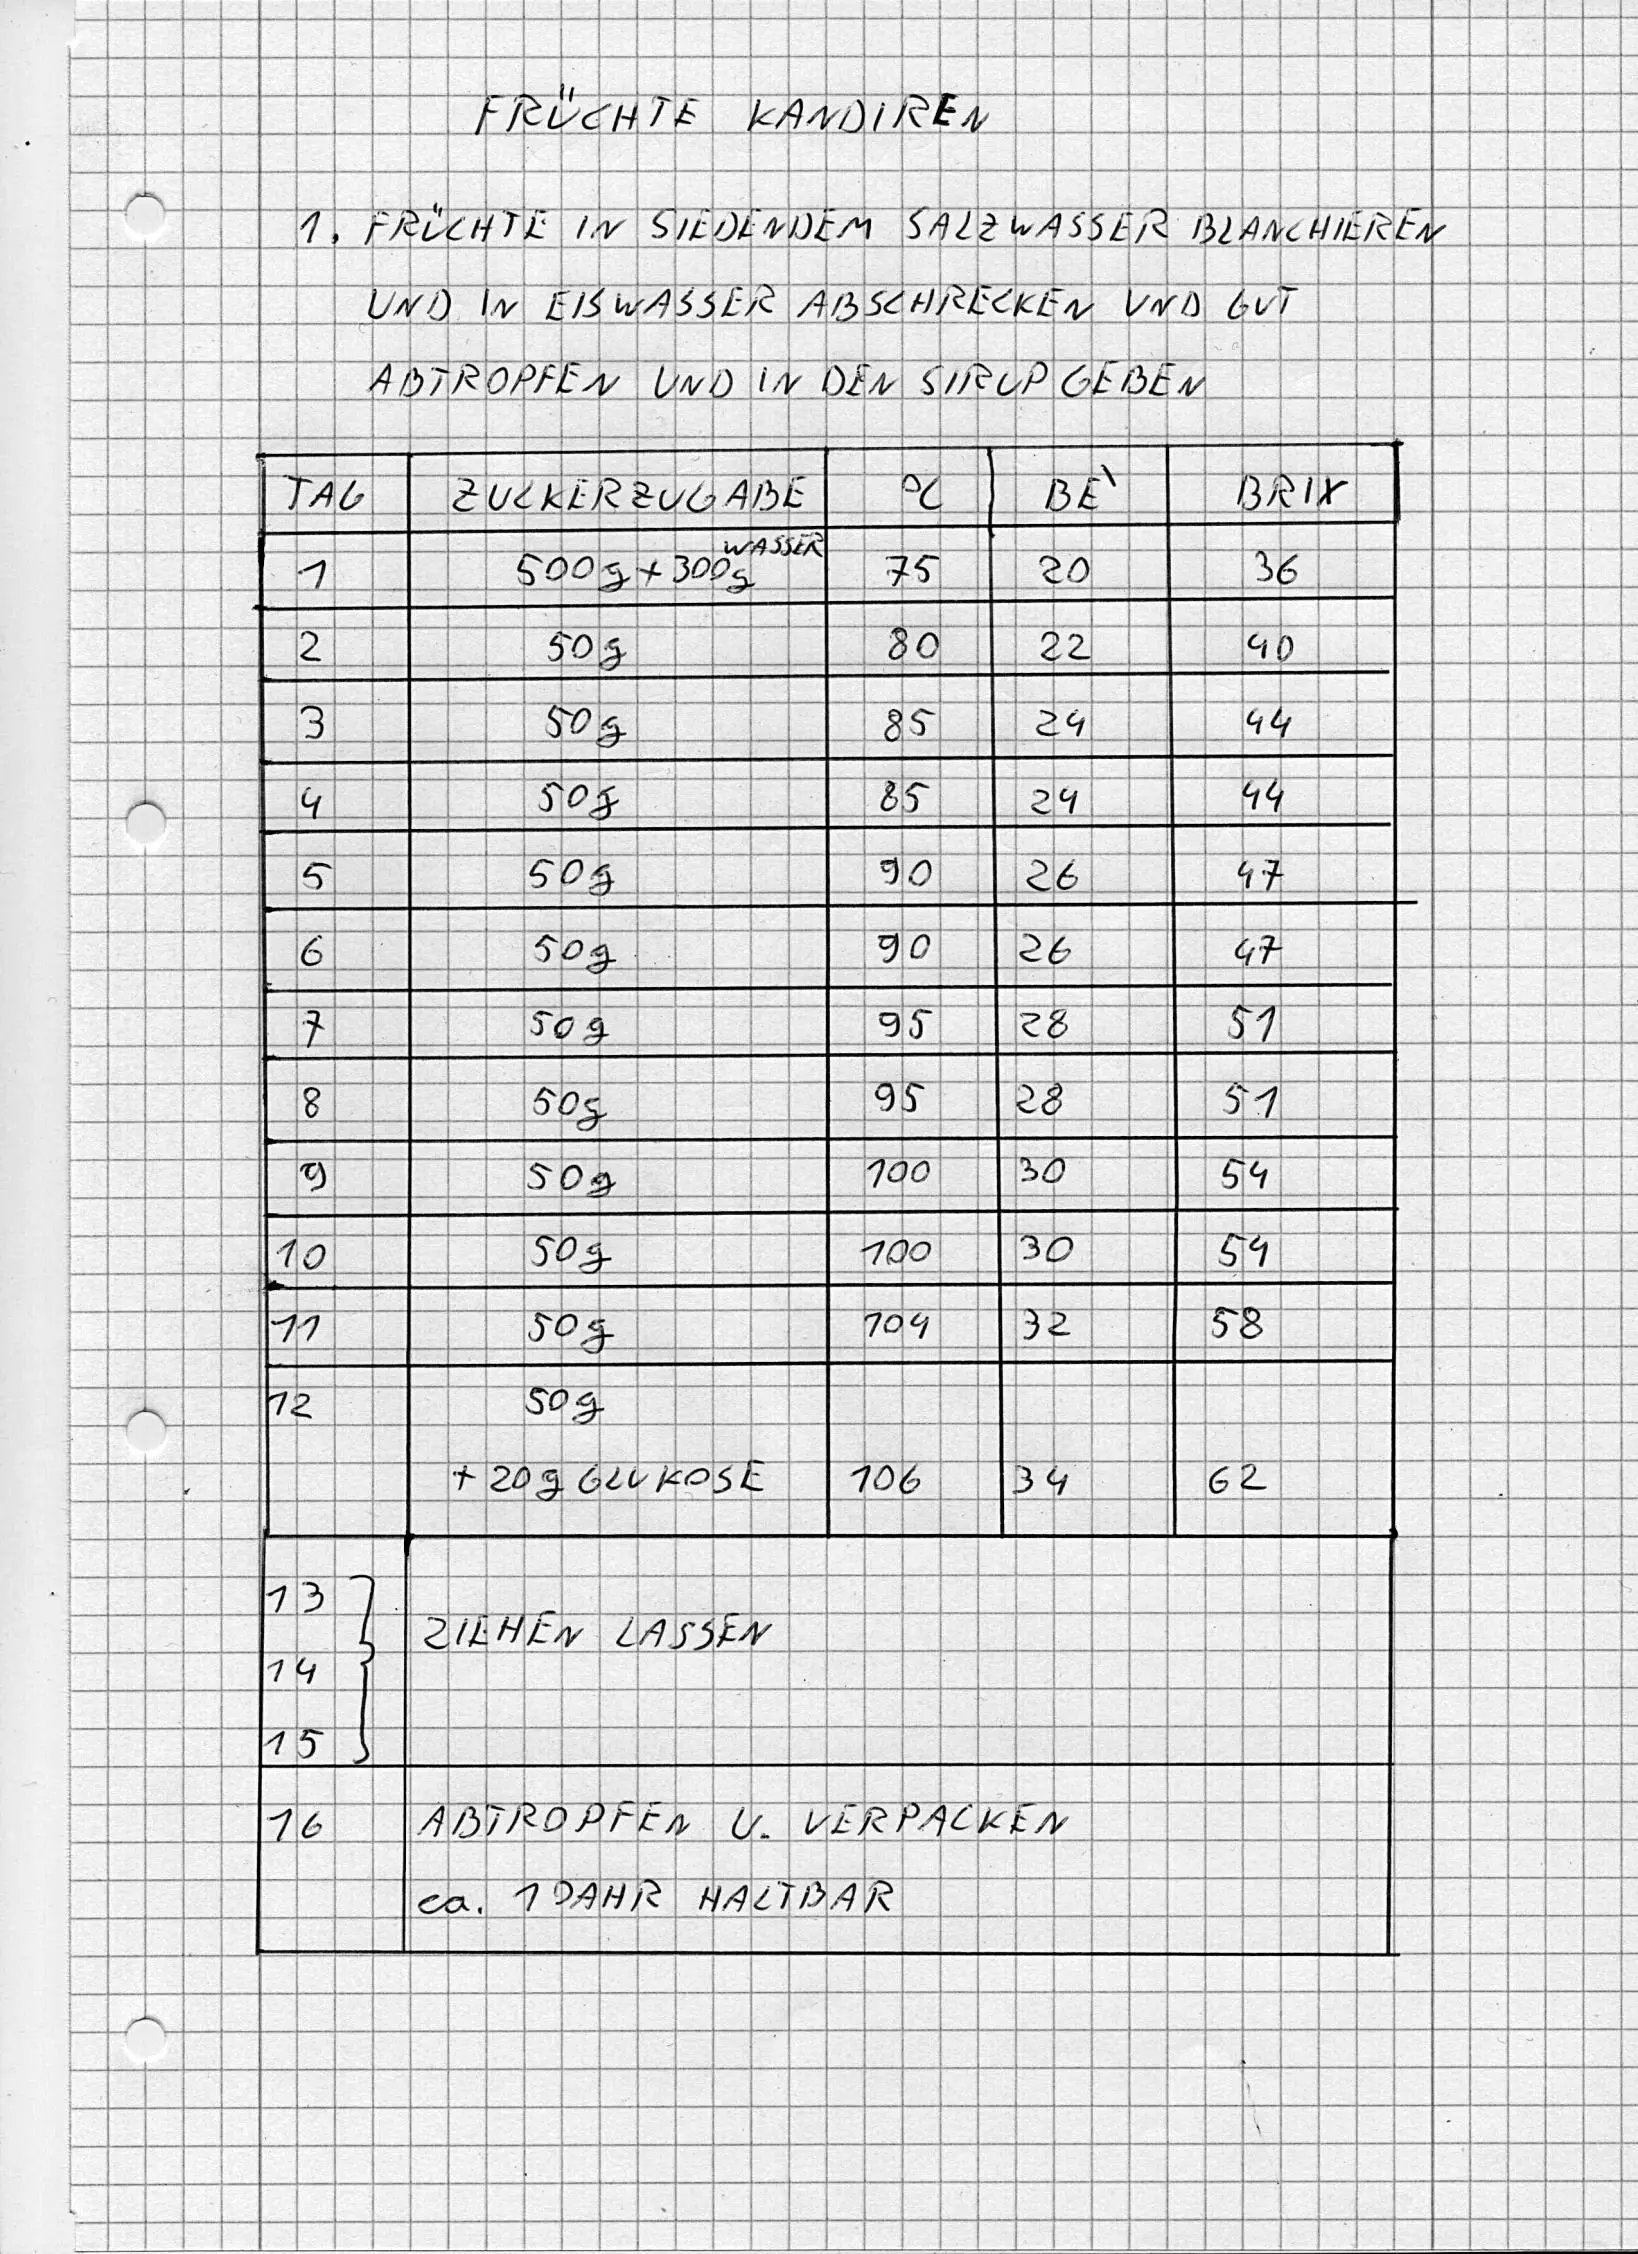 FRÜCHTE KANDIREN
1. FRÜCHTE IN SIEDENDEM SALZWASSER BLANCHIEREN
UND IN EISWASSER ABSCHRECKEN UND GUT
ABTROPFEN UND IN DEN SIRUP GEBEN
TAG ZUCKERZUGABE °C BE` BRIX
1 500g + 300g WASSER 75 20 36
2 50g 80 22 40
3 50g 85 24 44
4 50g 85 24 44
5 50g 90 26 47
6 50g 90 26 47
7 50g 95 28 51
8 50g 95 28 51
9 50g 100 30 54
10 50g 100 30 54
11 50g 104 32 58
12 50g
+ 20g GLUKOSE 106 34 62
13
ZIEHEN LASSEN
14
15
16 ABTROPFEN U. VERPACKEN
ca. 1 JAHR HALTBAR